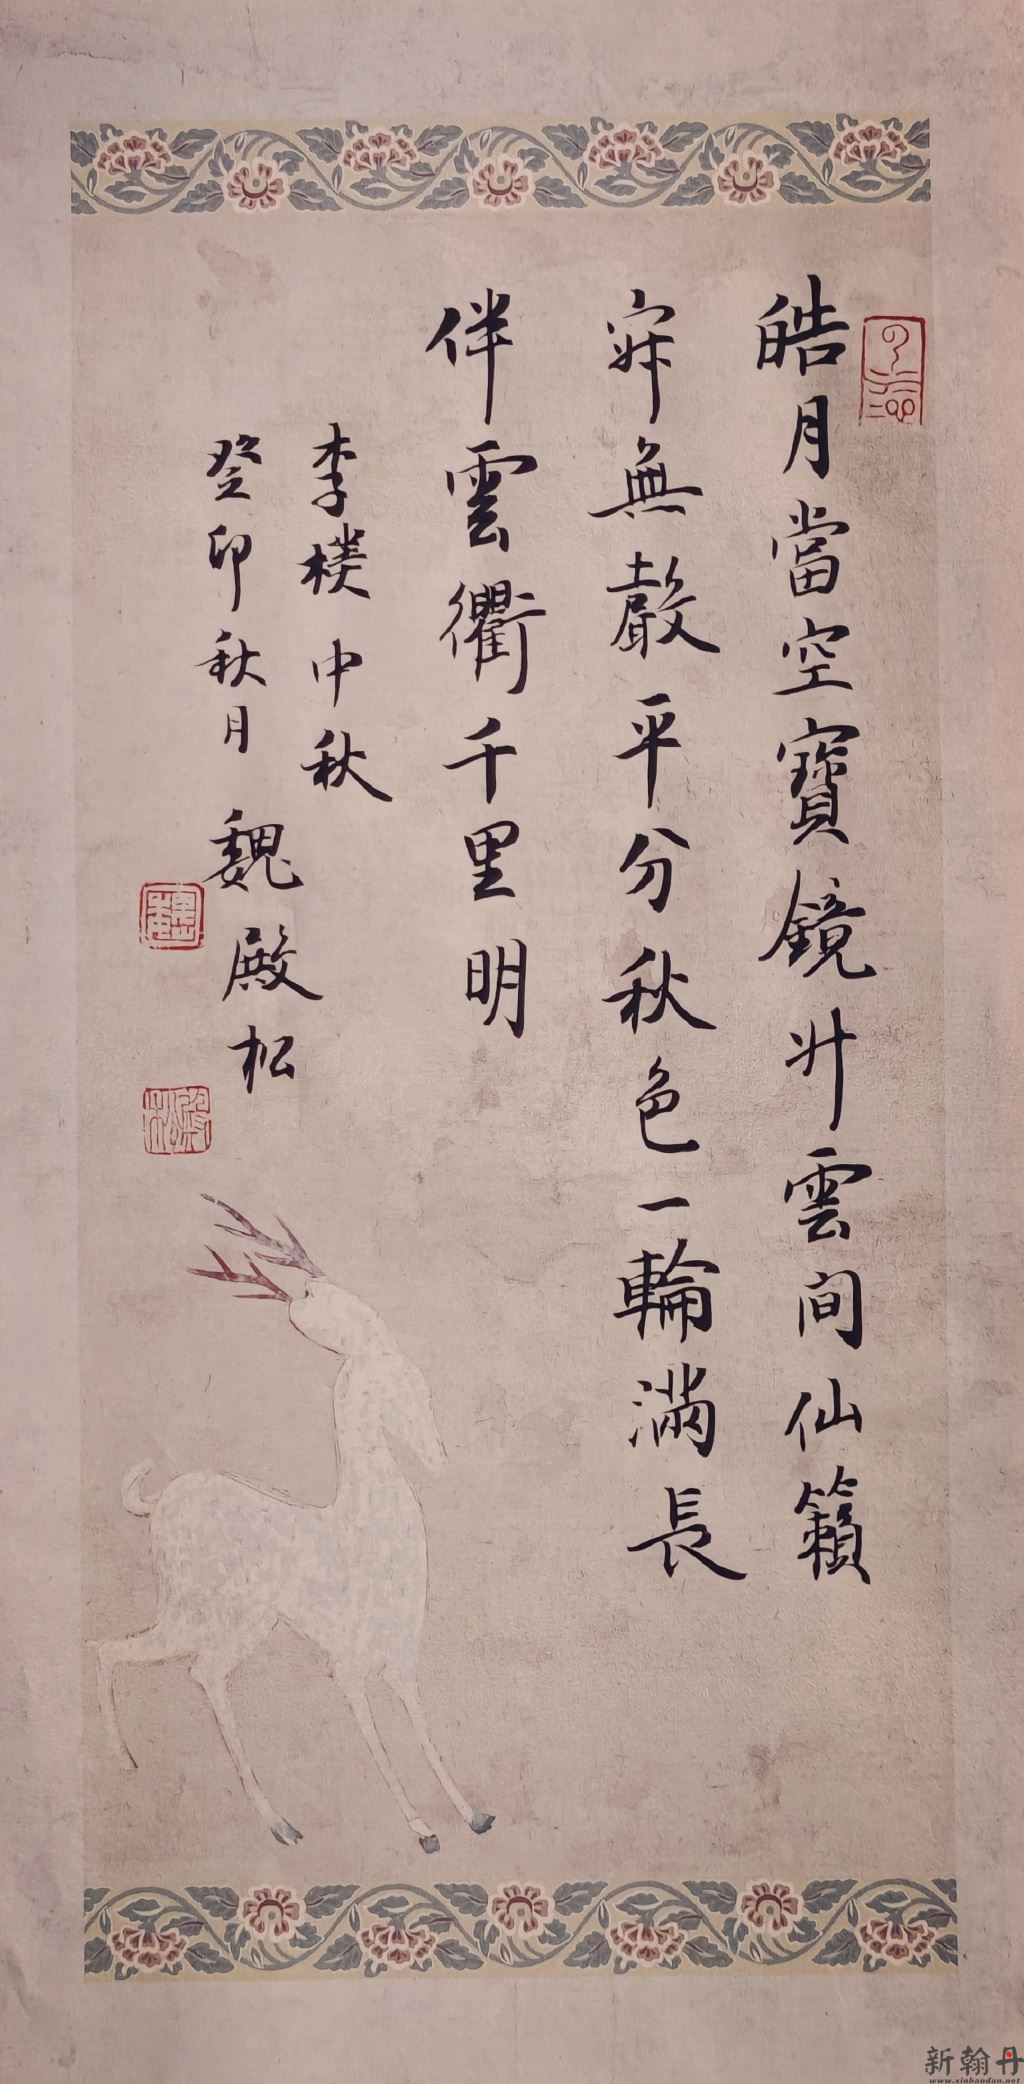 皓月當空寶鏡升雲間仙籟
寂無聲平分秋色一輪滿長
伴雲衢千里明
李樸中秋
癸卯秋月魏殿松
魏
殿松
新翰丹
www.xinhandan.net